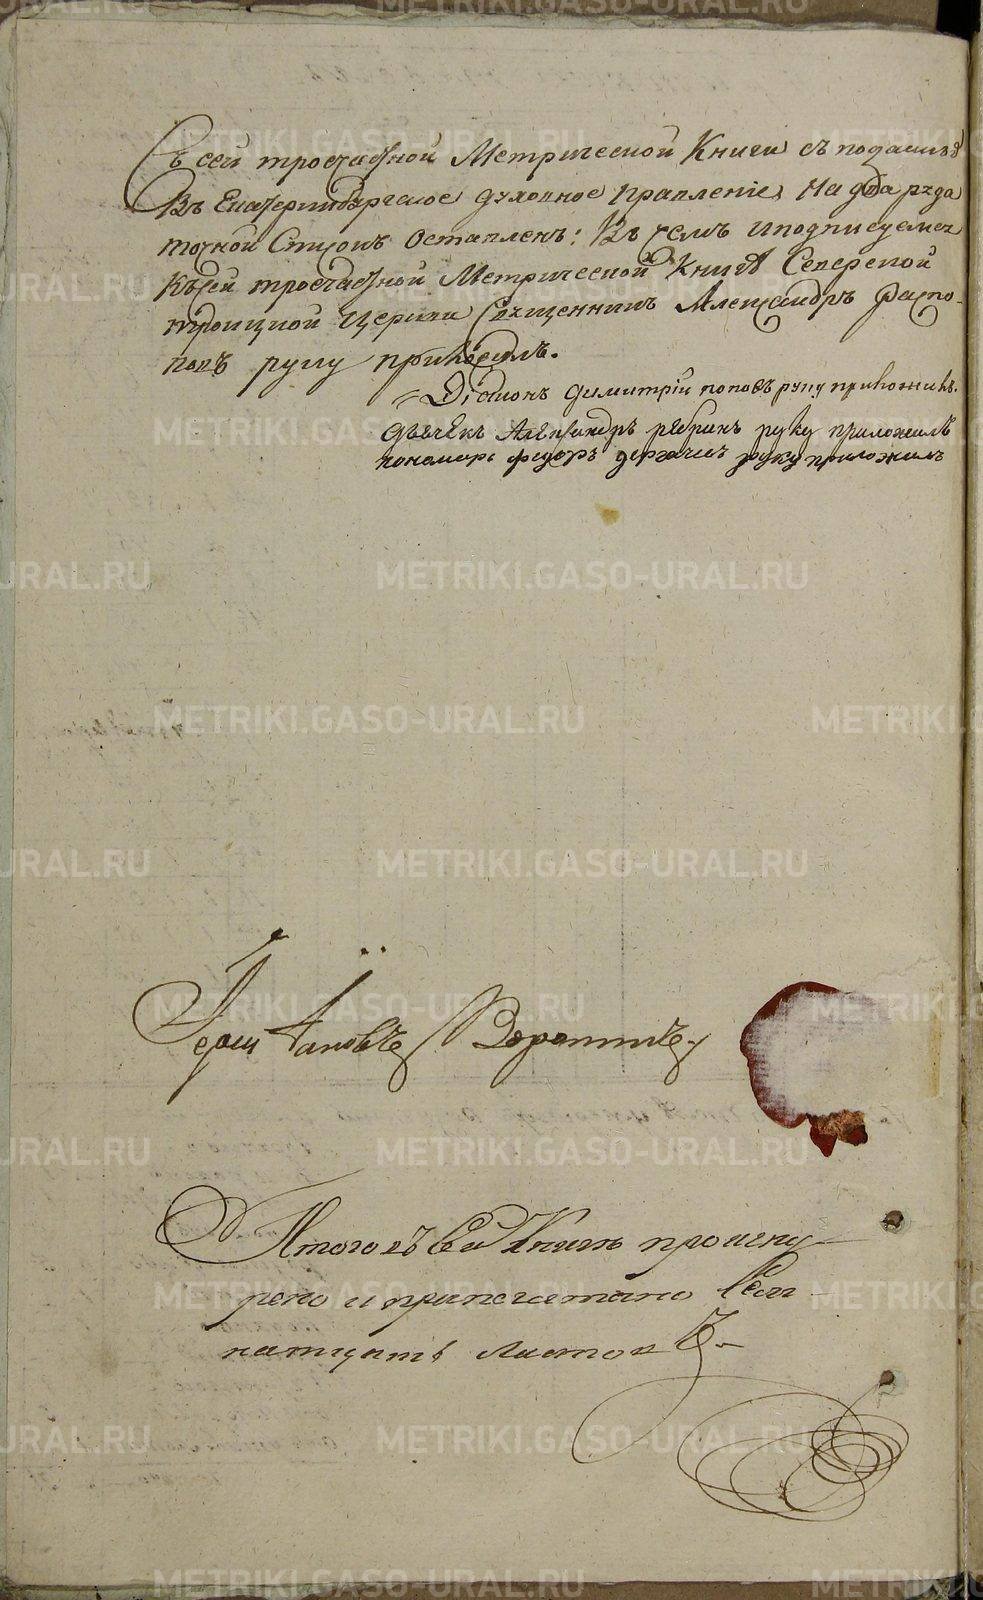 Съ сей трочастной Метрической Книги съ подачию
Въ Екатеринбургское духовное правленіе, На два ряда
точной Списокъ Оставленъ: Въ чемъ и подписуемсч
Къ сей трочастной Метрической Книгѣ Северской
троицкой церкви Священникъ Александръ
попъ руку приложилъ.
Діаконъ Димитрій поповъ руку приложилъ.
дьячекъ Александръ ребринъ руку приложилъ
пономарь федоръ дергачевъ руку приложилъ
Іаковъ
А того въ сей Книгѣ прошну
рено и припечатано Сем
натцать листовъ
METRIKI.GASO-URAL.RU